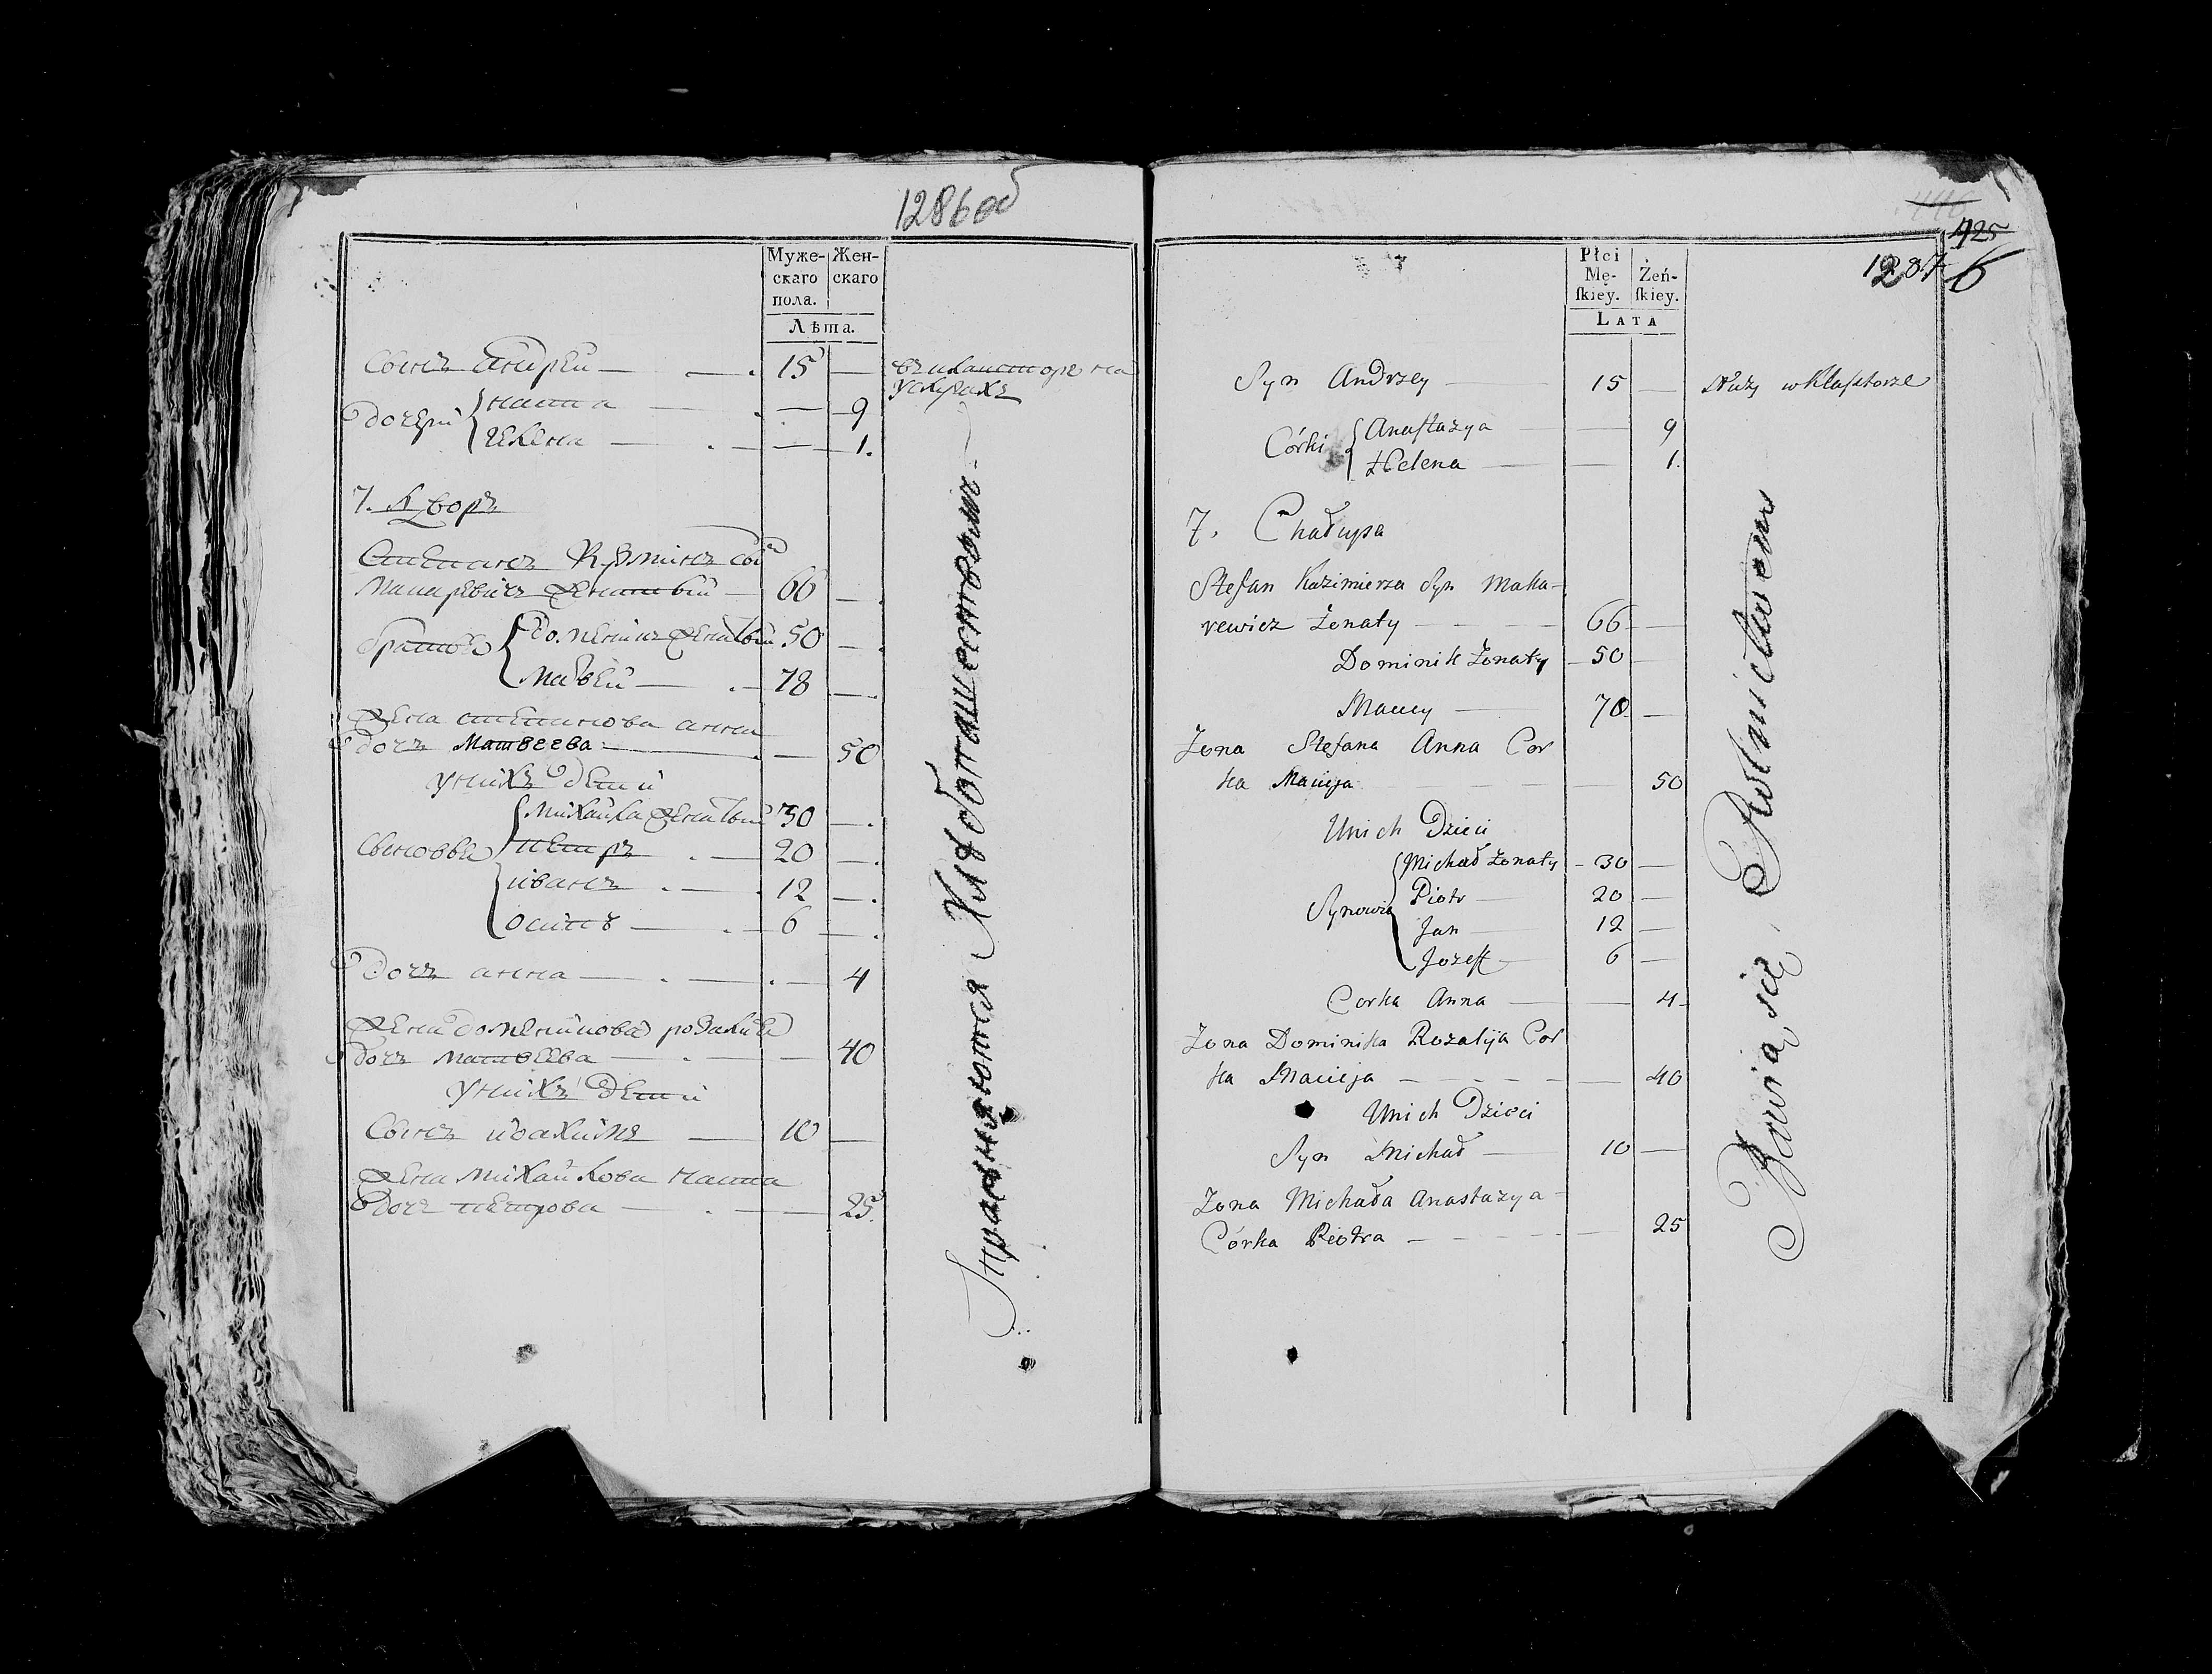 1286 об
Муже-
скаго
пола.
Жен-
скаго
Лѣта.
Сынъ Андрей — 15 — въ кляшторе на
услугахъ
Дочери Наста — — 9
Гелена — — 1.
7. Дворъ
Степанъ Кузминъ сынъ
Макаревичъ женатый — 66 —
братья Доменикъ женатый 50 —
Матвей — 78 —
Жена Степанова Анна
дочь Матвеева — — 50
У нихъ дети
Сыновья Михайла женатый 30 —
Петръ — 20 —
Иванъ — 12 —
Осипъ — 6 —
Дочь Анна — — 4
Жена Доменикова Розалия
дочь Матвеева — — 40
У нихъ дети
Сынъ — 10 —
Жена Михайлова Наста
дочь Петрова — — 25.
Упражняются Хлѣбопашествомъ
425
1287 6
Płci
Mę-
ſkiey.
Żeń-
ſkiey.
LATA
Syn Andrzey — 15 — Służy w Klasztorze
Córki Anastazya — — 9
Helena — — 1.
7. Chałupa
Stefan Kazimierza Syn Maka-
rewicz Żonaty — 66 —
Dominik Żonaty — 50 —
Maciey — 70 —
Żona Stefana Anna Cor
ka Macieja — 50
U nich Dzieci
Synowie Michał Żonaty — 30 —
Piotr — 20 —
Jan — 12 —
Jozeff — 6 —
Corka Anna — — 4
Żona Dominika Rozalija Cor
ka Macieja — — 40
U nich Dzieci
Syn Michał — 10 —
Żona Michała Anastazya
Córka Piotra — — 25
Bawią się Rolnictwem